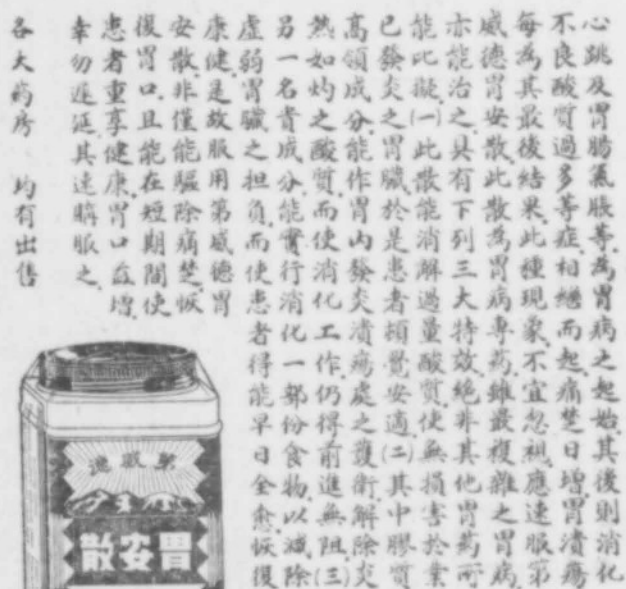 心跳及胃腸氣脹等.為胃病之起始.其後則消化
不良酸質過多等症.相繼而起.痛楚日增.胃潰瘍
每為其最後結果.此種現象.不宜忽視.應速服第
威德胃安散.此散為胃病專药.雖最複雜之胃病.
亦能治之.具有下列三大特效.絕非其他胃药所
能比擬.(一)此散能消解過量酸質.使無損害於業
已發炎之胃臟.於是患者頓覺安適.(二)其中膠質
高領成分.能作胃内發炎潰瘍處之護衛.解除炎
熱如灼之酸質.而使消化工作.仍得前進無阻.(三)
另一名貴成分.能實行消化一部份食物.以減除
虛弱胃臟之担負.而使患者得能早日全愈.恢復
康健.是故服用第威德胃
安散.非僅能驅除痛楚.恢
復胃口.且能在短期間使
患者重享健康.胃口益增.
幸勿遲延.其速購服之.
各大药房 均有出售
德威第
胃安散